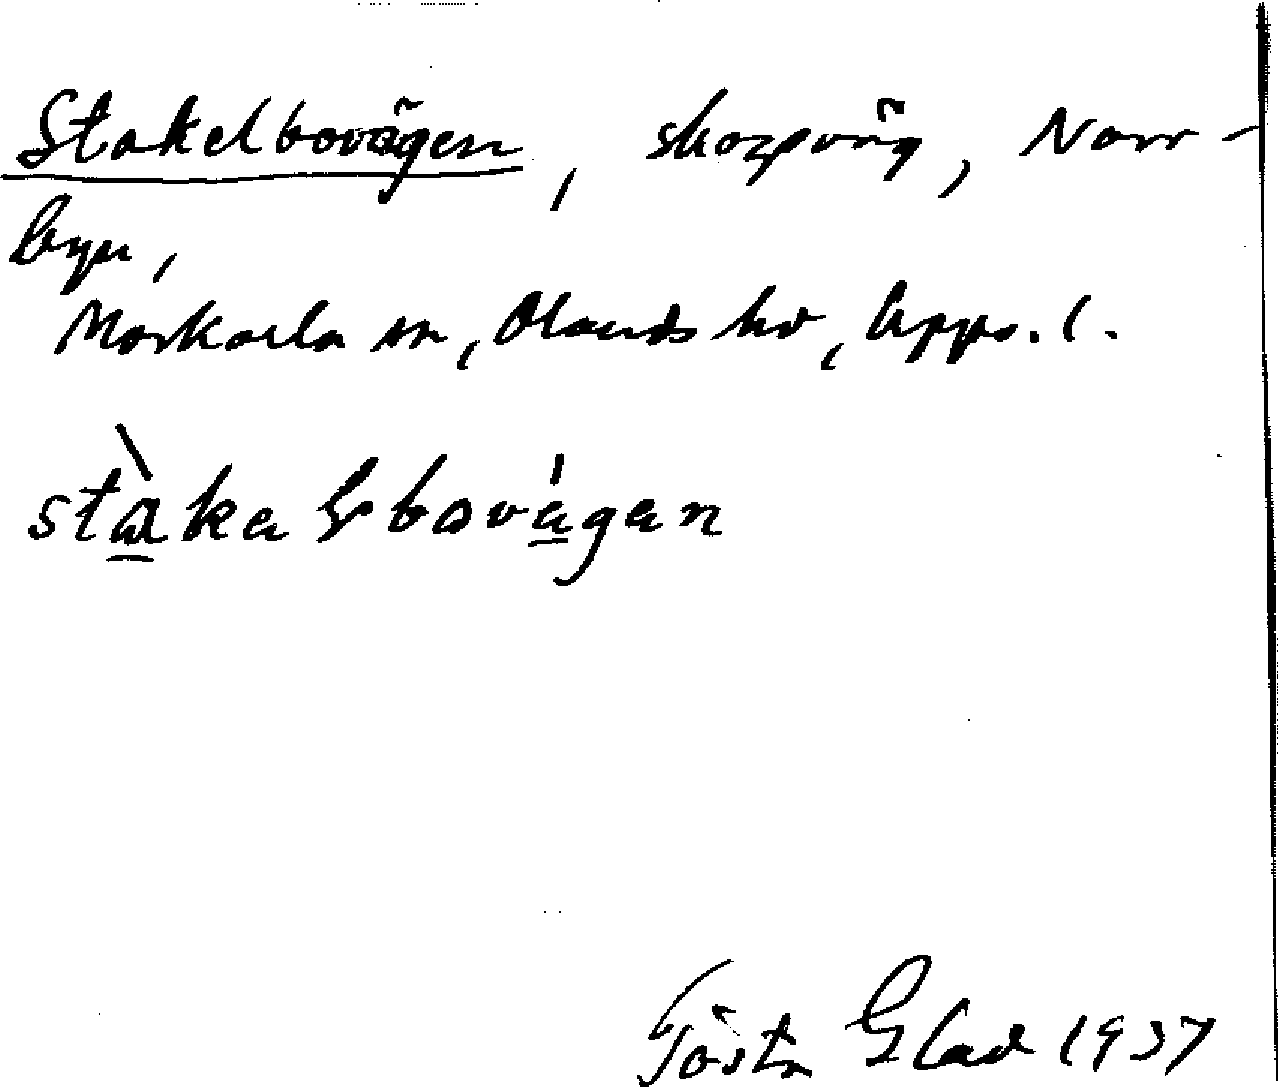 Stakelbovägen, skogsväg, Norr-
byn,
Morkarla sn, Olands hd, Upps. l.
stàkalbovágan
Gösta Glad 1937